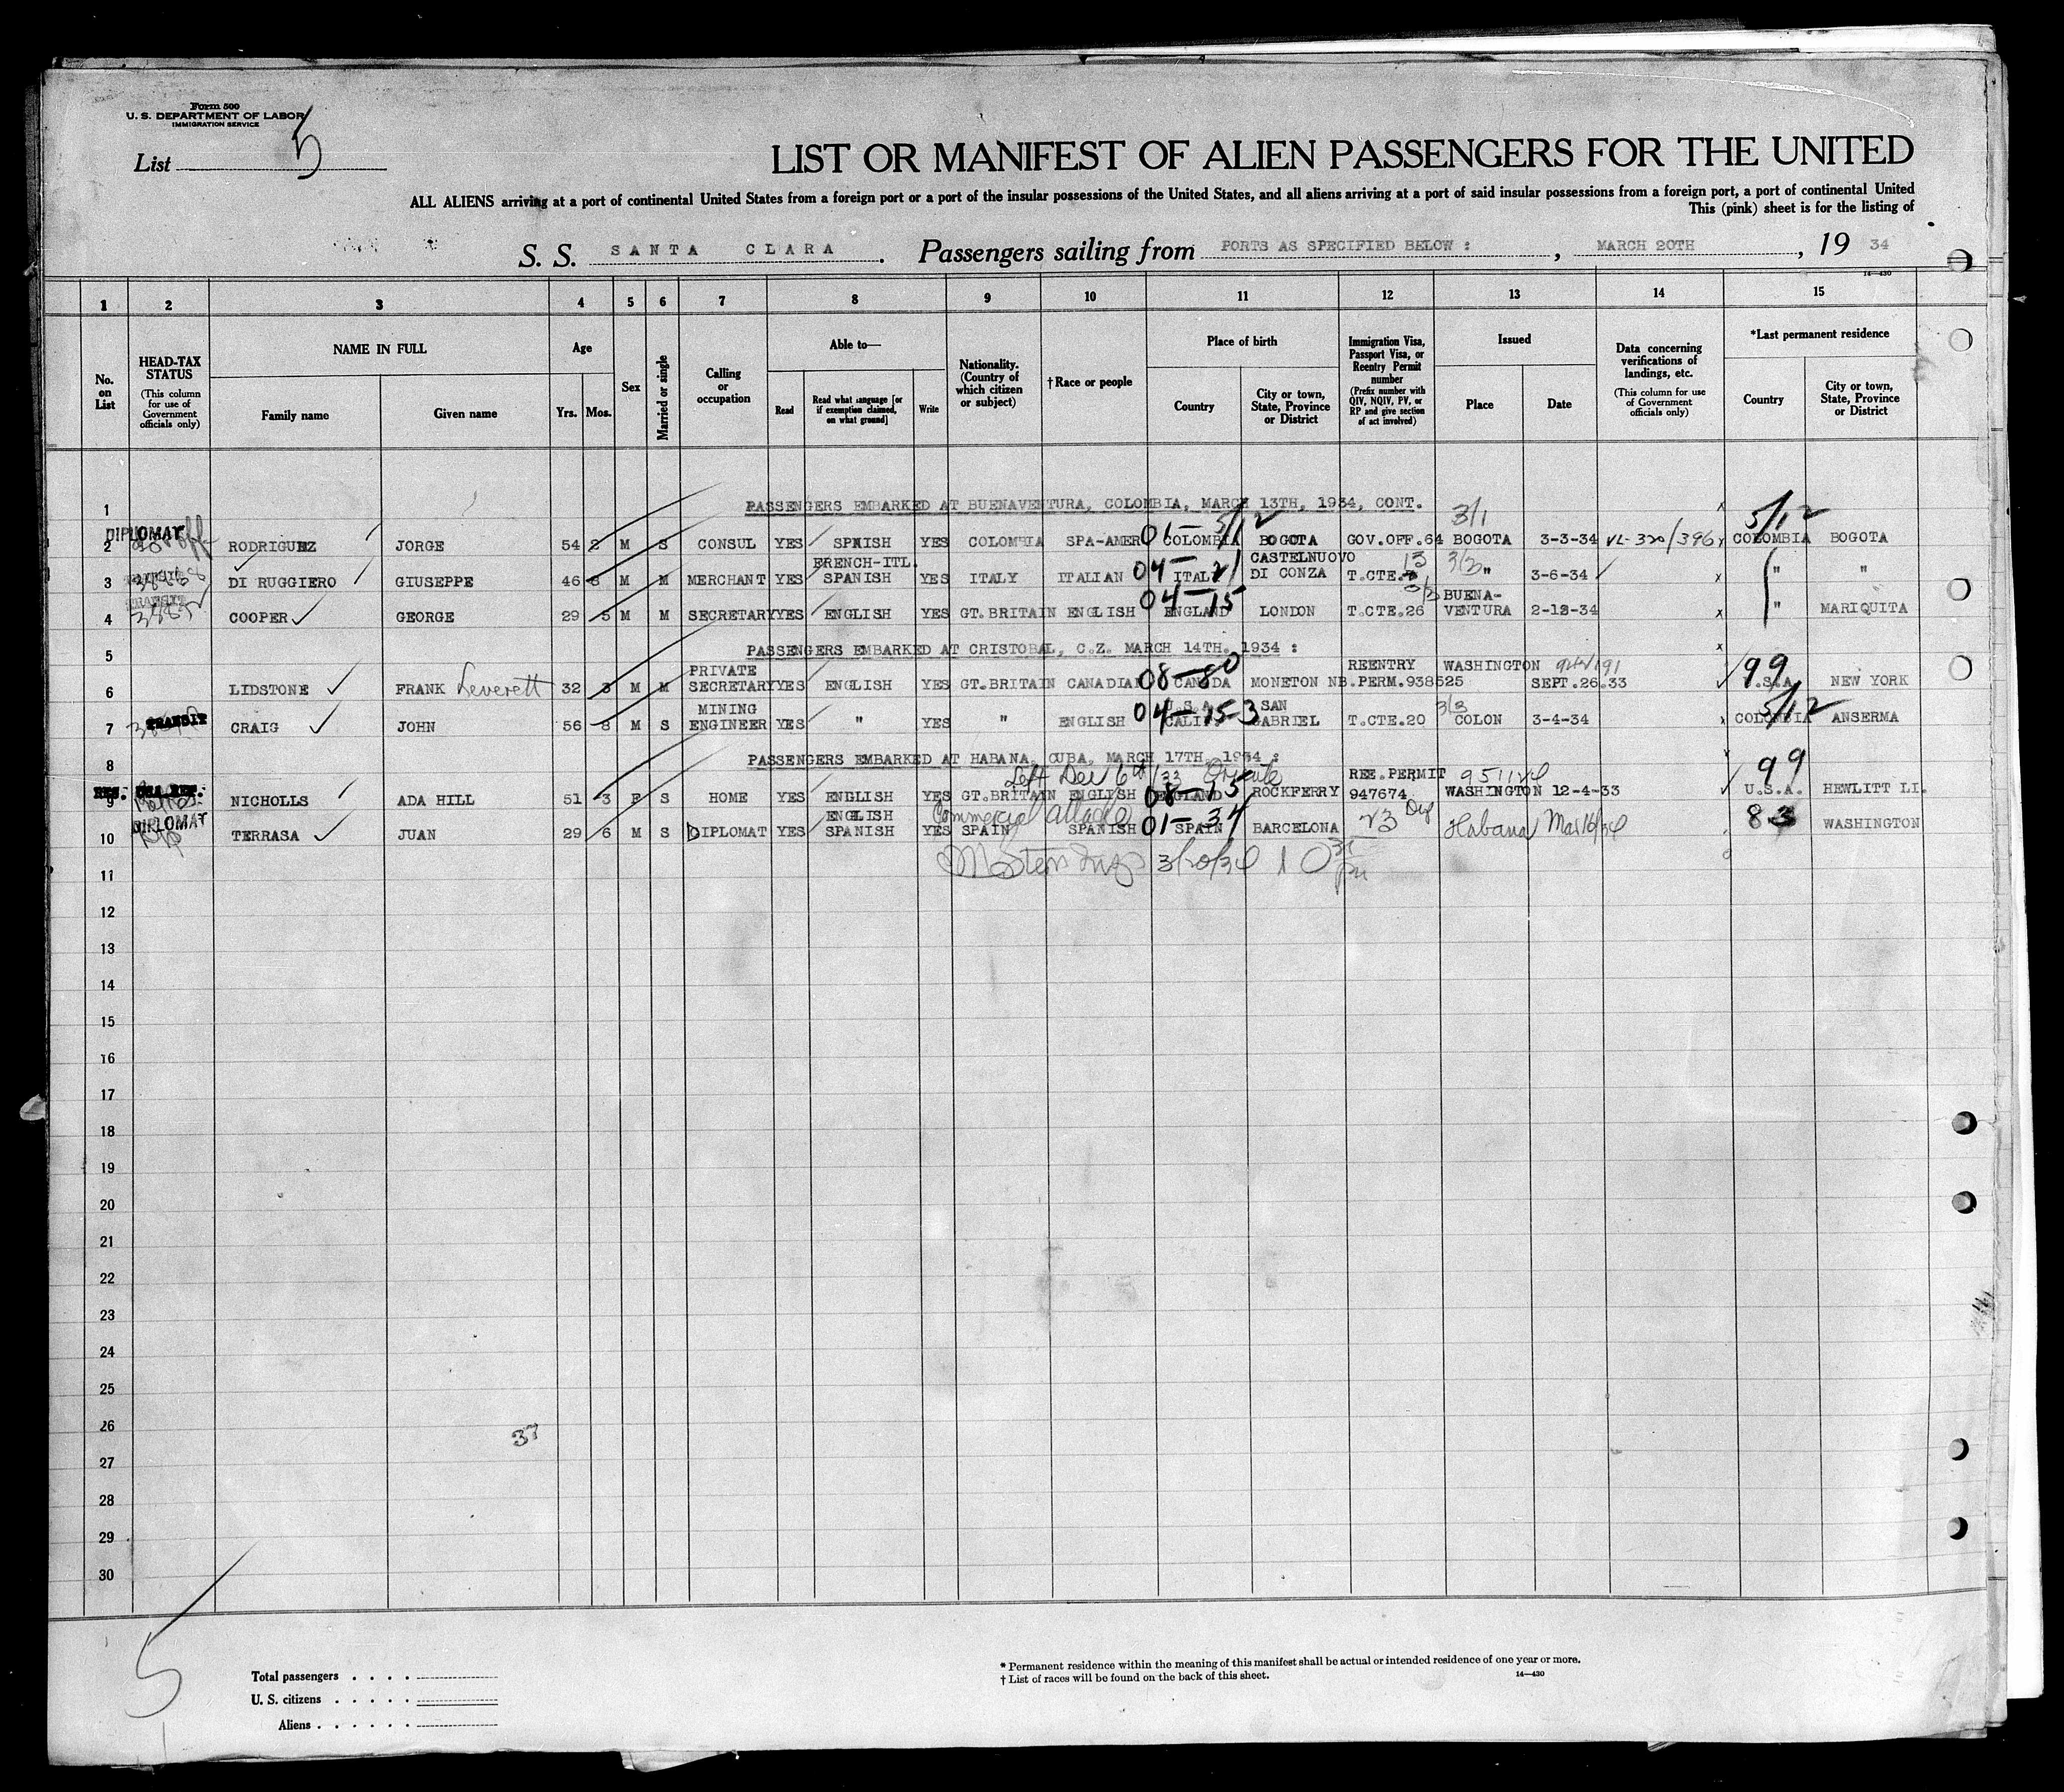 Form 500
U. S. DEPARTMENT OF LABOR
IMMIGRATION SERVICE
List 5
LIST OR MANIFEST OF ALIEN PASSENGERS FOR THE UNITED
ALL ALIENS arriving at a port of continental United States from a foreign port or a port of the insular possessions of the United States, and all aliens arriving at a port of said insular possessions from a foreign port, a port of continental United
This (pink) sheet is for the listing of
S. S. SANTA CLARA. Passengers sailing from PORTS AS SPECIFIED BELOW :, MARCH 20TH, 19 34
14—430
1 2 3 4 5 6 7 8 9 10 11 12 13 14 15
No. on List
HEAD-TAX STATUS (This column for use of Government officials only)
NAME IN FULL Family name Given name
Age Yrs. Mos.
Sex
Married or single
Calling or occupation
Able to— Read Read what language [or if exemption claimed, on what ground] Write
Nationality. (Country of which citizen or subject)
†Race or people
Place of birth Country City or town, State, Province or District
Immigration Visa, Passport Visa, or Reentry Permit number (Prefix number with QIV, NQIV, PV, or RP and give section of act involved)
Issued Place Date
Data concerning verifications of landings, etc. (This column for use of Government officials only)
*Last permanent residence Country City or town, State, Province or District
1 PASSENGERS EMBARKED AT BUENAVENTURA, COLOMBIA, MARCH 13TH, 1934, CONT.
3/1 5/12
DIPLOMAT 01-5/12
2 RODRIGUEZ JORGE 54 2 M S CONSUL YES SPNISH YES COLOMBIA SPA-AMER COLOMBIA BOGOTA GOV.OFF.64 BOGOTA 3-3-34 VL-320/396 COLOMBIA BOGOTA
FRENCH-ITL. CASTELNUOVO 13 3/3
3 DI RUGGIERO GIUSEPPE 46 8 M M MERCHANT YES SPANISH YES ITALY ITALIAN 04-21 ITALY DI CONZA T.CTE. " 3-6-34 " "
TRANSIT 04-15 3/3 BUENA-
4 COOPER GEORGE 29 5 M M SECRETARY YES ENGLISH YES GT.BRITAIN ENGLISH ENGLAND LONDON T.CTE.26 VENTURA 2-12-34 " MARIQUITA
5 PASSENGERS EMBARKED AT CRISTOBAL, C.Z. MARCH 14TH. 1934 :
PRIVATE 08-80 REENTRY WASHINGTON 99
6 LIDSTONE FRANK Leverett 32 3 M M SECRETARY YES ENGLISH YES GT.BRITAIN CANADIAN CANADA MONETON NB. PERM.938525 SEPT.26.33 U.S.A. NEW YORK
TRANSIT MINING U.S.A. SAN 3/3 5/12
7 CRAIG JOHN 56 8 M S ENGINEER YES " YES " ENGLISH 04-15-3 CALIF GABRIEL T.CTE.20 COLON 3-4-34 COLOMBIA ANSERMA
8 PASSENGERS EMBARKED AT HABANA, CUBA, MARCH 17TH, 1934 :
Left Dec 6th/33 Oriente REE.PERMIT 99
9 NICHOLLS ADA HILL 51 3 F S HOME YES ENGLISH YES GT.BRITAIN ENGLISH 08-15 ENGLAND ROCKFERRY 947674 WASHINGTON 12-4-33 U.S.A. HEWLITT LI.
DIPLOMAT ENGLISH Commercial attache
10 TERRASA JUAN 29 6 M S DIPLOMAT YES SPANISH YES SPAIN SPANISH 01-37 SPAIN BARCELONA V3 Dip Habana Mar 16/34 83 WASHINGTON
11 3/20/34
12
13
14
15
16
17
18
19
20
21
22
23
24
25
26
37
27
28
29
30
5
Total passengers . . . .
U. S. citizens . . . . .
Aliens . . . . . .
* Permanent residence within the meaning of this manifest shall be actual or intended residence of one year or more.
† List of races will be found on the back of this sheet.
14—430